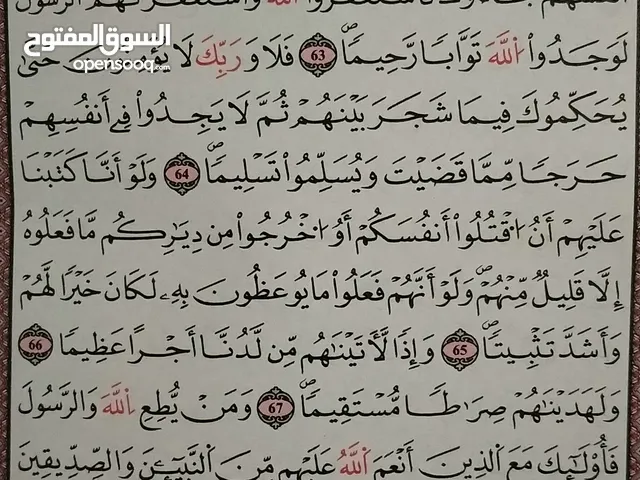 السوق المفتوح
opensooq.com
لَوَجَدُواْ اُ۬للَّهَ تَوَّاباٗ رَّحِيماٗۖ 63 فَلَا وَرَبِّكَ لَا حَتَّىٰ
يُحَكِّمُوكَ فِيمَا شَجَرَ بَيْنَهُمْ ثُمَّ لَا يَجِدُواْ فِےٓ أَنفُسِهِمْ
حَرَجاٗ مِّمَّا قَضَيْتَ وَيُسَلِّمُواْ تَسْلِيماٗۖ 64 وَلَوْ أَنَّا كَتَبْنَا
عَلَيْهِمْ أَنُ اُ۟قْتُلُوٓاْ أَنفُسَكُمْ أَوُ اُ۟خْرُجُواْ مِن دِيٰ۪رِكُم مَّا فَعَلُوهُ
إِلَّا قَلِيلٞ مِّنْهُمْۖ وَلَوْ أَنَّهُمْ فَعَلُواْ مَا يُوعَظُونَ بِهِۦ لَكَانَ خَيْراٗ لَّهُمْ
وَأَشَدَّ تَثْبِيتاٗۖ 65 وَإِذاٗ لَّأٓتَيْنَٰهُم مِّن لَّدُنَّآ أَجْراً عَظِيماٗ 66
وَلَهَدَيْنَٰهُمْ صِرَٰطاٗ مُّسْتَقِيماٗۖ 67 وَمَنْ يُّطِعِ اِ۬للَّهَ وَالرَّسُولَ
فَأُوْلَٰٓئِكَ مَعَ اَ۬لذِينَ أَنْعَمَ اَ۬للَّهُ عَلَيْهِم مِّنَ اَ۬لنَّبِيٓـِٕينَ وَالصِّدِّيقِينَ